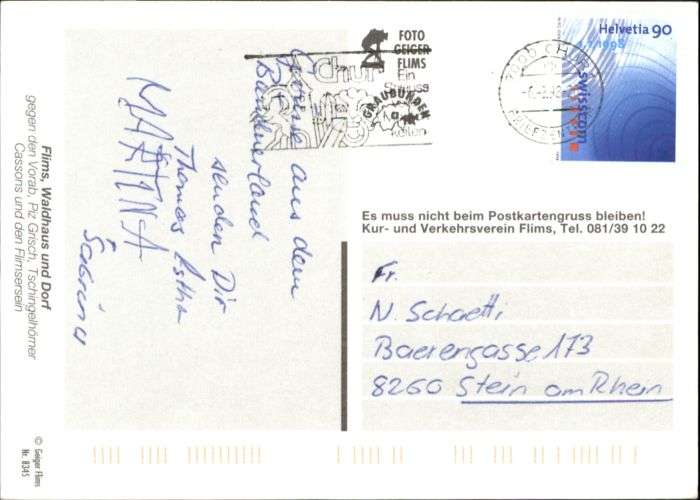 FOTO
GEIGER
FLIMS
GRAUBÜNDEN
Chur
Ein
7000 CHUR
Helvetia 90
1.1.1998
swisscom
Grüsse aus dem
Bündnerland
senden Dir
Thomas Esther
MARTINA
Sabrina
Es muss nicht beim Postkartengruss bleiben!
Kur- und Verkehrsverein Flims, Tel. 081/39 10 22
Fr.
N. Schaetti
Baerengasse 173
8260 Stein am Rhein
Flims, Waldhaus und Dorf
gegen den Vorab, Piz Grisch, Tschingelhörner
Cassons und den Flimserstein
© Geiger Flims
Nr. 8345